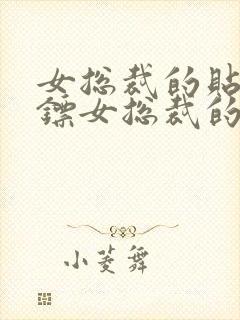 女总裁的贴
镖女总裁的
小菱舞